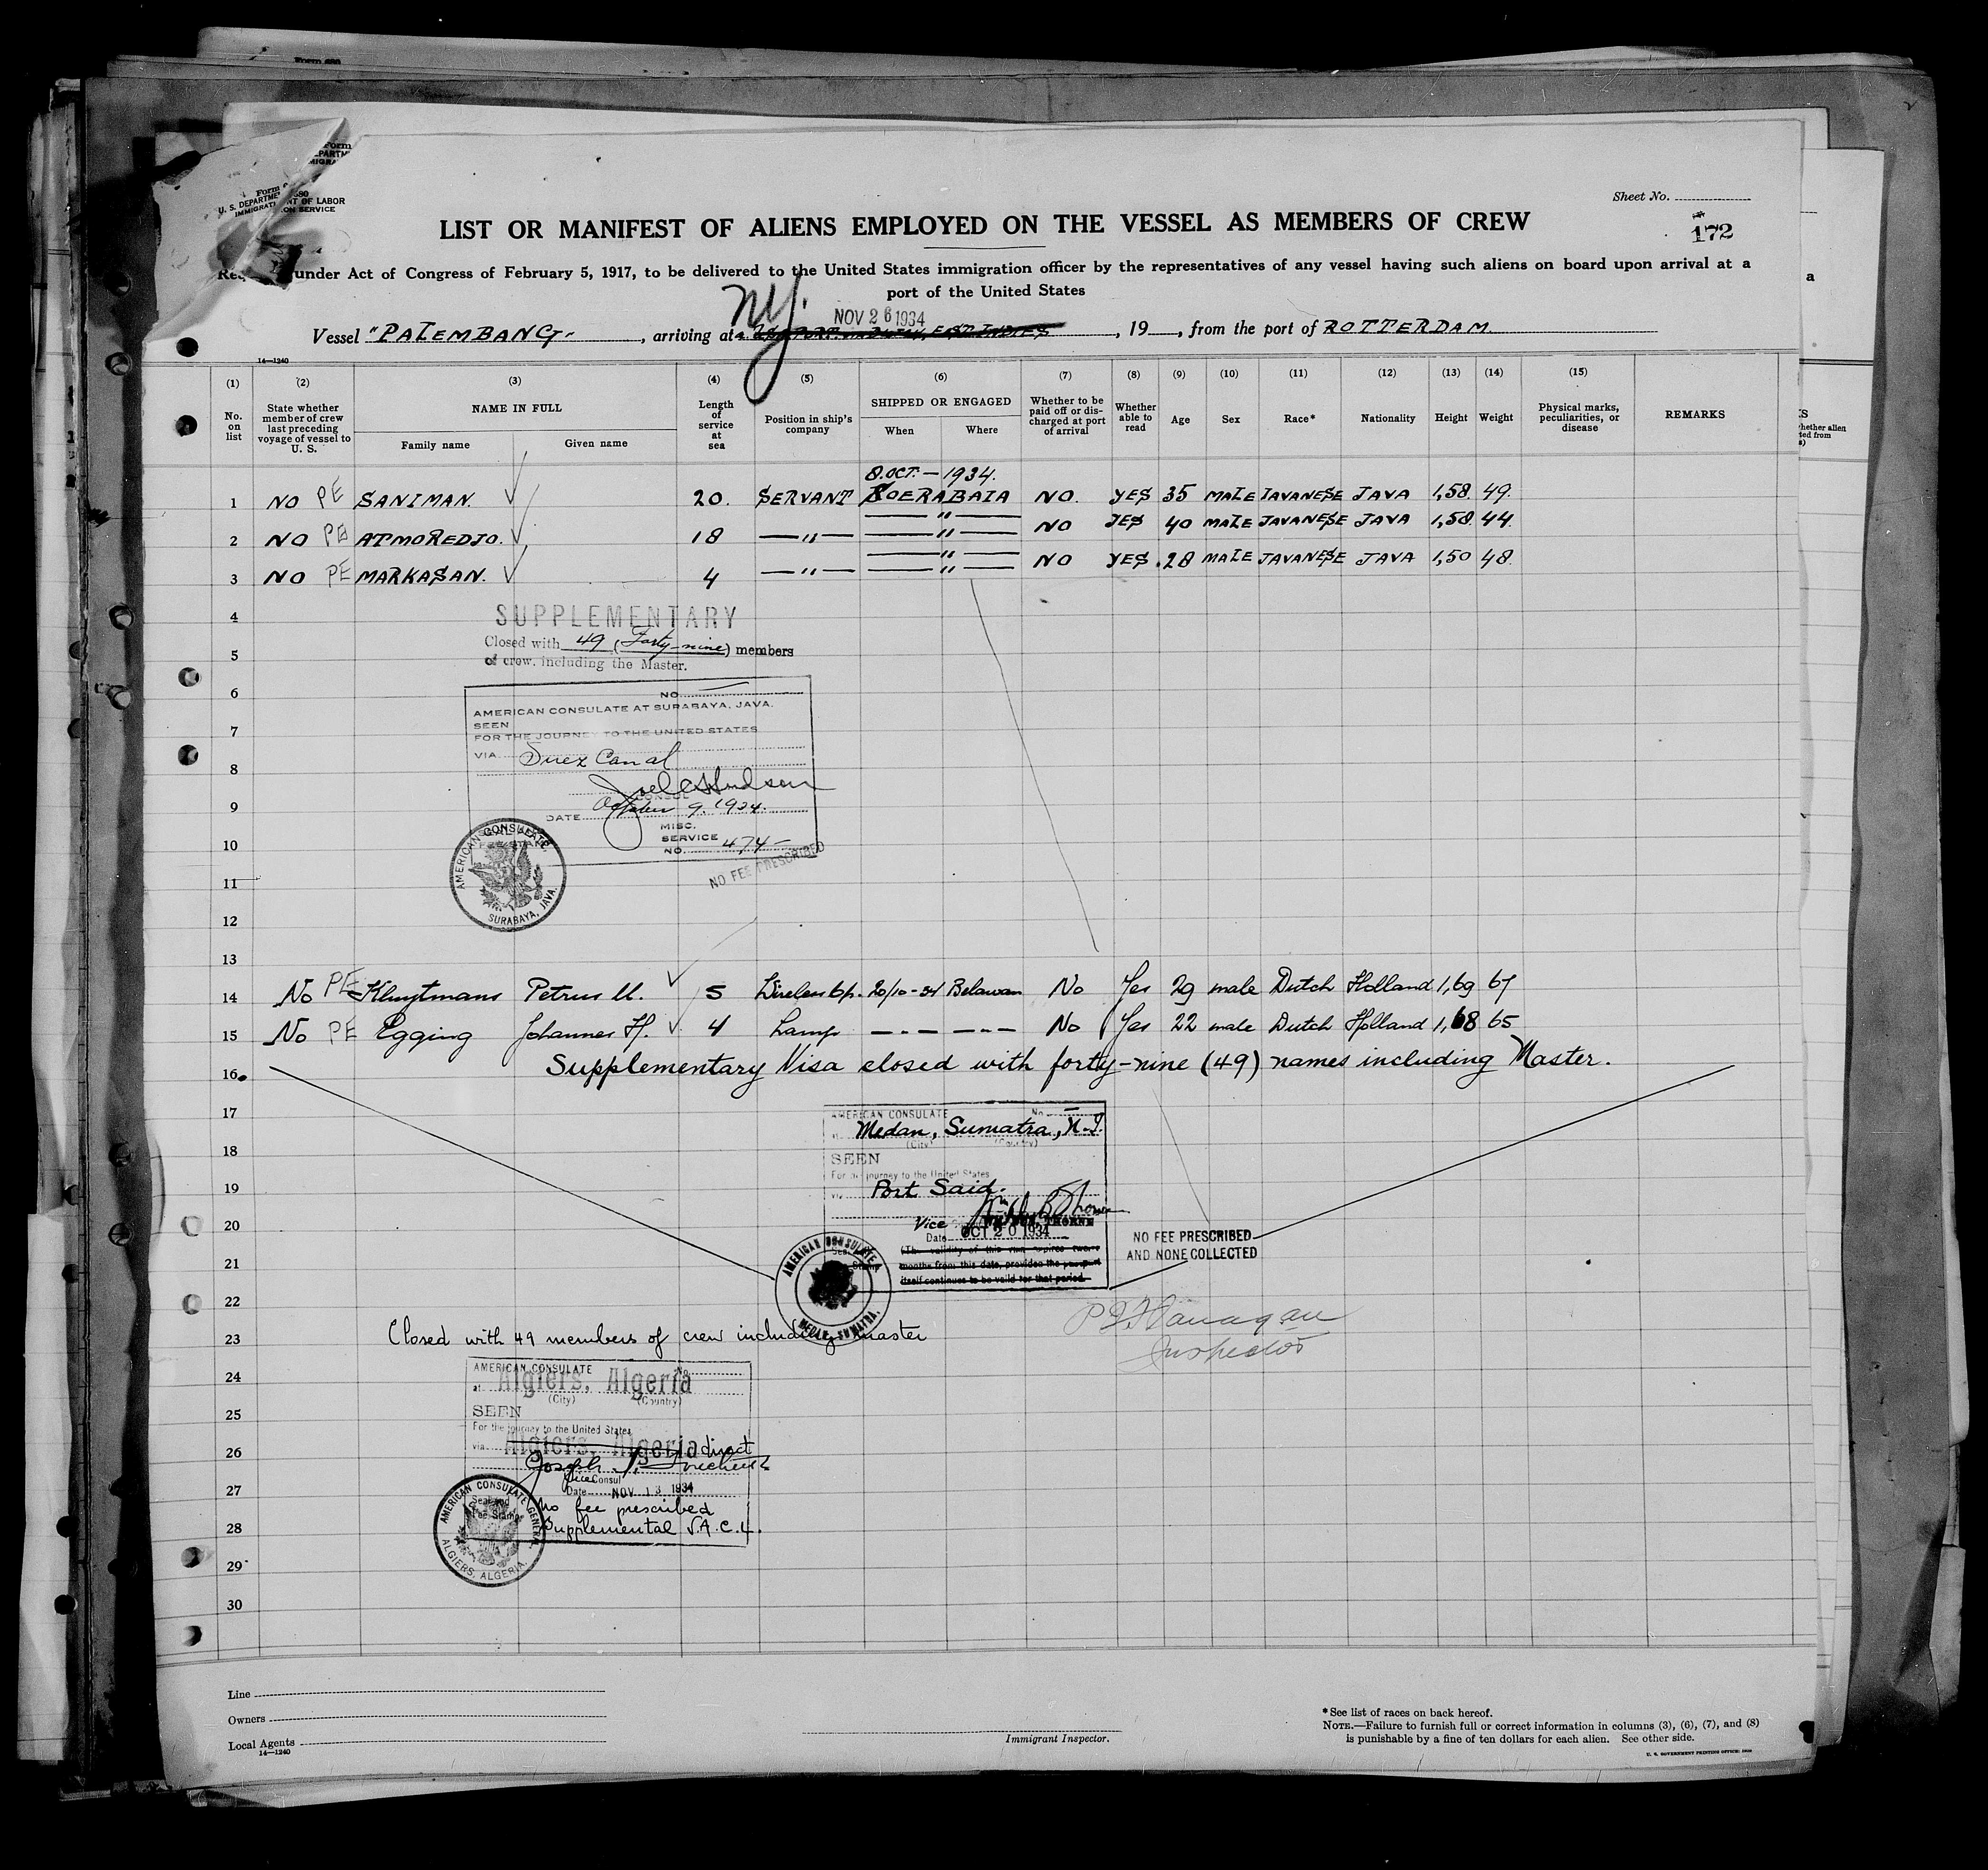 Form 680
U. S. DEPARTMENT OF LABOR
IMMIGRATION SERVICE
Sheet No.
172
LIST OR MANIFEST OF ALIENS EMPLOYED ON THE VESSEL AS MEMBERS OF CREW
under Act of Congress of February 5, 1917, to be delivered to the United States immigration officer by the representatives of any vessel having such aliens on board upon arrival at a
port of the United States
NY. NOV 26 1934
Vessel "PALEMBANG" , arriving at , 19 , from the port of ROTTERDAM
14—1240
(1) (2) (3) (4) (5) (6) (7) (8) (9) (10) (11) (12) (13) (14) (15)
No. on list
State whether member of crew last preceding voyage of vessel to U. S.
NAME IN FULL
Family name Given name
Length of service at sea
Position in ship's company
SHIPPED OR ENGAGED
When Where
Whether to be paid off or discharged at port of arrival
Whether able to read
Age
Sex
Race*
Nationality
Height
Weight
Physical marks, peculiarities, or disease
REMARKS
8.OCT.—1934.
1 NO PE SANIMAN. 20. SERVANT SOERABAIA NO. YES 35 MALE JAVANESE JAVA 1,58 49.
2 NO PE ATMOREDJO. 18 —"— —"— NO YES 40 MALE JAVANESE JAVA 1,58 44.
3 NO PE MARKASAN. 4 —"— —"— NO YES 28 MALE JAVANESE JAVA 1,50 48.
4
SUPPLEMENTARY
Closed with 49 (Forty-nine) members
5
of crew, including the Master.
6
NO.
AMERICAN CONSULATE AT SURABAYA, JAVA.
SEEN
7
FOR THE JOURNEY TO THE UNITED STATES
VIA Suez Canal
8
Joel C Hudson
CONSUL
9
DATE October 9, 1934.
MISC.
SERVICE
NO. 474-
10
NO FEE PRESCRIBED
AMERICAN CONSULATE
SURABAYA, JAVA.
11
12
13
14 No PE Kluytmans Petrus U. 5 Wireless Op. 20/10-34 Belawan No Yes 29 male Dutch Holland 1,69 67
15 No PE Egging Johannes H. 4 Lamp —-— —-— No Yes 22 male Dutch Holland 1,68 65
16 Supplementary Visa closed with forty-nine (49) names including Master.
17
AMERICAN CONSULATE No.
at Medan, Sumatra, N.I.
(City) (Country)
18
SEEN
For the journey to the United States
19
via Port Said.
20
Vice THORNE
Date OCT 20 1934
NO FEE PRESCRIBED
AND NONE COLLECTED
21
(The validity of this visa expires twelve
months from this date, provided the passport
itself continues to be valid for that period.
AMERICAN CONSULATE
MEDAN, SUMATRA.
22
P J Flanagan
Inspector
23 Closed with 49 members of crew including master
24
AMERICAN CONSULATE No.
at Algiers, Algeria
(City) (Country)
25
SEEN
For the journey to the United States
26
via Algiers, Algeria direct
Vice Consul
27
Date NOV 13 1934
Seal and
Fee Stamp
No fee prescribed
28
Supplemental V.A.C.L.
AMERICAN CONSULATE GENERAL
ALGIERS, ALGERIA.
29
30
Line
Owners
Local Agents
14—1240
Immigrant Inspector.
*See list of races on back hereof.
NOTE.—Failure to furnish full or correct information in columns (3), (6), (7), and (8)
is punishable by a fine of ten dollars for each alien. See other side.